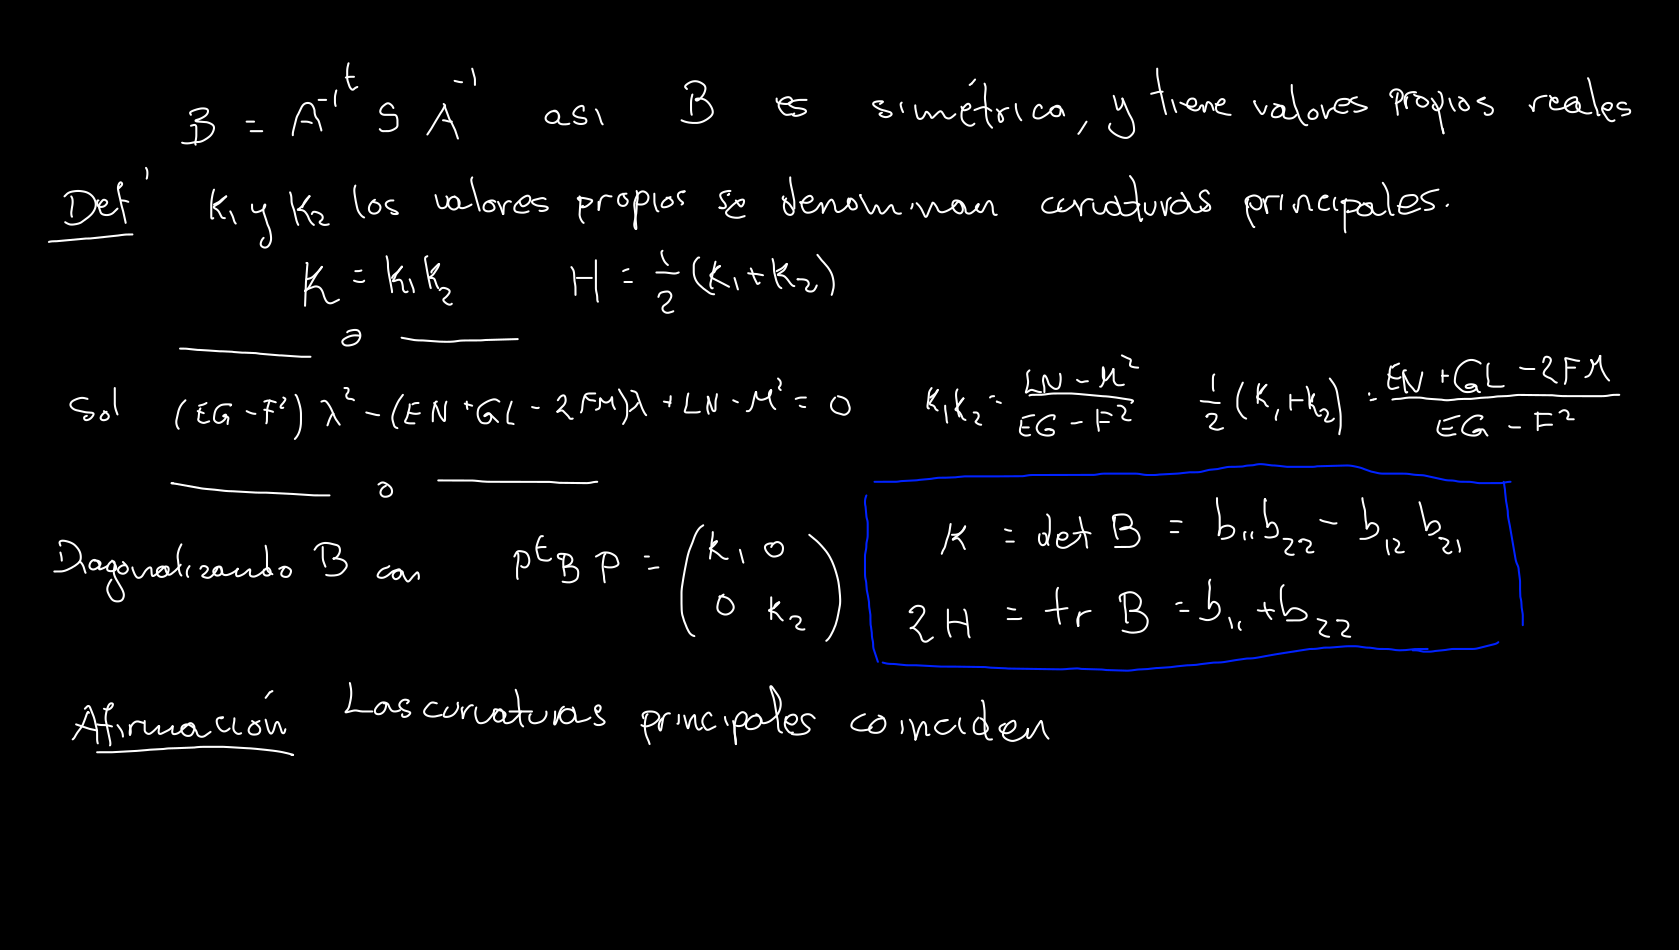 B = A^{-1 t} S A^{-1} asi B es simétrica, y tiene valores propios reales
Def' k₁ y k₂ los valores propios se denominan curvaturas principales.
K = k₁k₂ H = 1/2 (k₁+k₂)
Sol (EG - F²) λ² - (EN + GL - 2FM)λ + LN - M² = 0 k₁k₂ = (LN - M²)/(EG - F²) 1/2 (k₁+k₂) = (EN + GL - 2FM)/(EG - F²)
Diagonalizando B con PᵗBP = (k₁ 0
0 k₂)
K = det B = b₁₁b₂₂ - b₁₂ b₂₁
2H = tr B = b₁₁ + b₂₂
Afirmación Las curvaturas principales coinciden